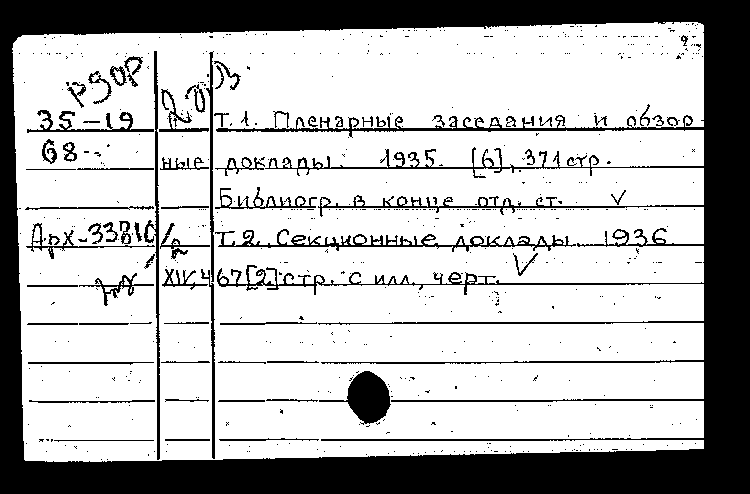 2.
РЗОР
35-19 Т.1. Пленарные заседания и обзор-
68- ные доклады. 1935. [6], 371 стр.
Библиогр. в конце отд. ст. V
Арх-33810/2 Т.2. Секционные доклады 1936
XIV, 467 [2] стр. с илл., черт. V